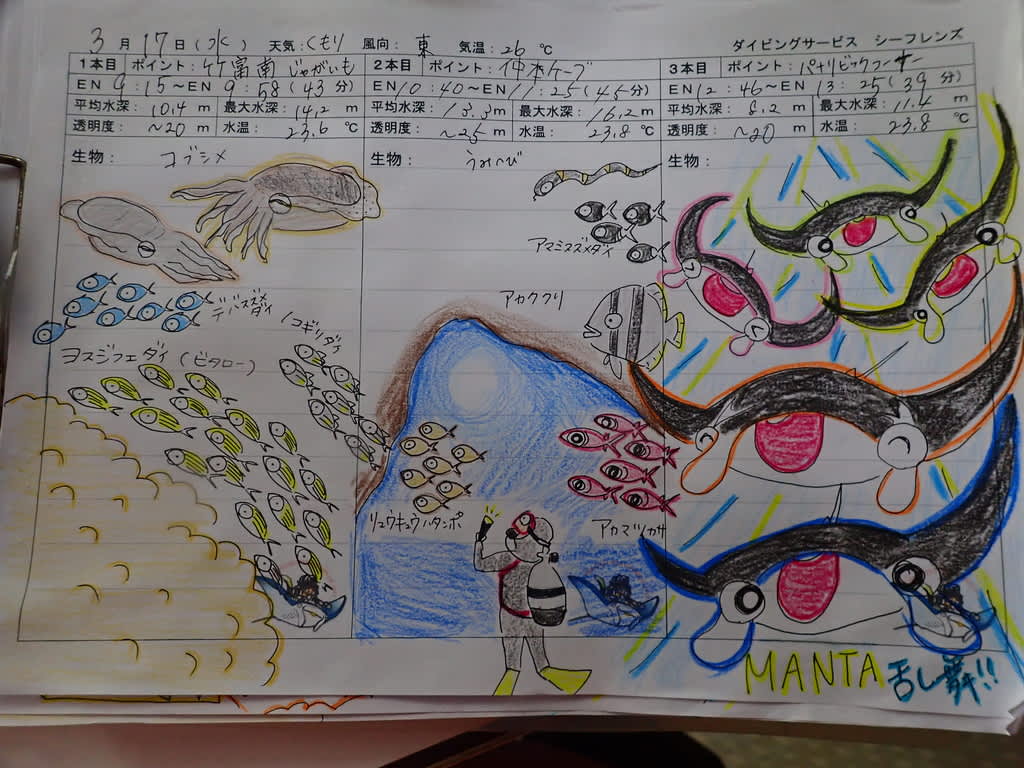 3月17日(水) 天気:くもり 風向: 東 気温: 26 ℃ ダイビングサービス シーフレンズ
1本目 ポイント: 竹富南じゃがいも 2本目 ポイント: 仲本ケーブ 3本目 ポイント: パナリビックコーナー
EN 9:15~EN 9:58(43分) EN10:40~EN 11:25(45分) EN12:46~EN 13:25(39分)
平均水深: 10.4 m 最大水深: 14.2 m 平均水深: 13.3 m 最大水深: 16.2 m 平均水深: 8.2 m 最大水深: 11.4 m
透明度: ~20 m 水温: 23.6 ℃ 透明度: ~25 m 水温: 23.8 ℃ 透明度: ~20 m 水温: 23.8 ℃
生物: コブシメ 生物: うみへび 生物:
アマミスズメダイ
デバスズメダイ
アカククリ
ノコギリダイ
ヨスジフエダイ(ビタロー)
リュウキュウハタンポ
アカマツカサ
MANTA 舌し舞!!